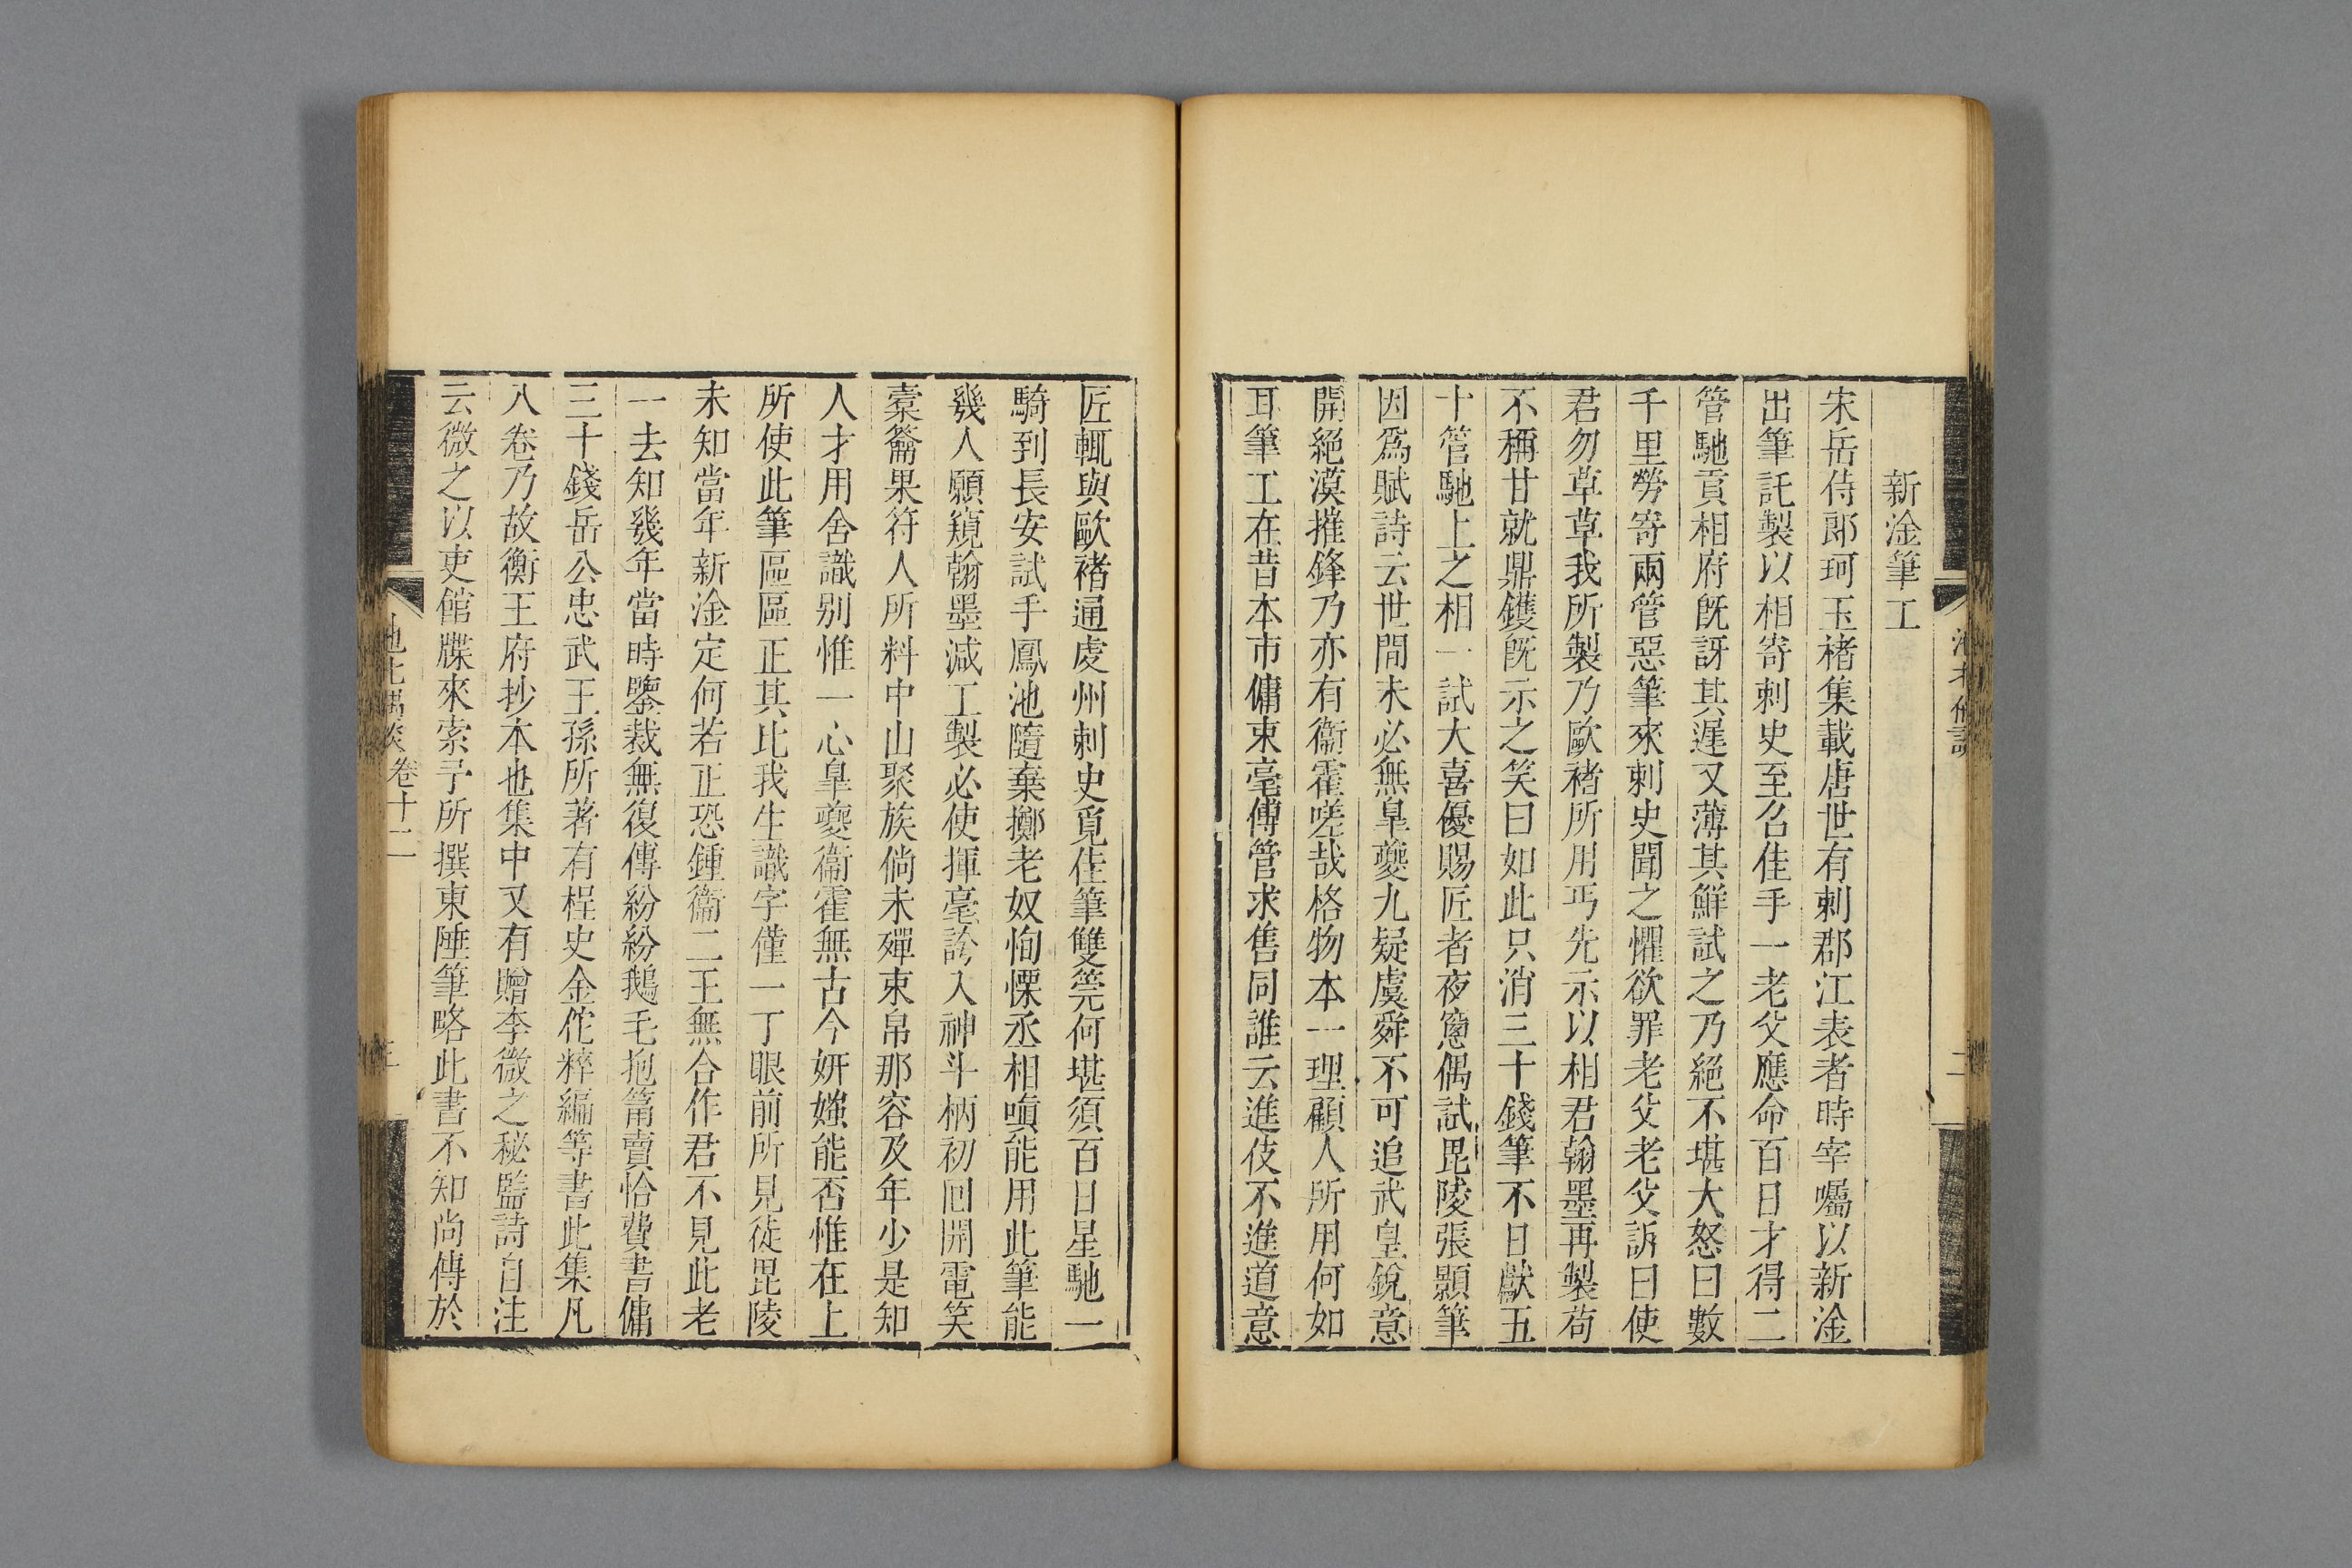 新淦筆工
宋岳侍郎珂玉褚集載唐世有刺郡江表者時宰囑以新淦
出筆託製以相寄刺史至召佳手一老父應命百日才得二
管馳貢相府既訝其遲又薄其鮮試之乃絕不堪大怒曰數
千里勞寄兩管惡筆來刺史聞之懼欲罪老父老父訴曰使
君勿草草我所製乃歐褚所用丐先示以相君翰墨再製苟
不稱甘就鼎鑊既示之笑曰如此只消三十錢筆不日獻五
十管馳上之相一試大喜優賜匠者夜窻偶試毘陵張顥筆
因爲賦詩云世間未必無臯夔九疑虞舜不可追武皇銳意
開絕漠摧鋒乃亦有衞霍嗟哉格物本一理顧人所用何如
耳筆工在昔本市傭束毫傅管求售同誰云進伎不進道意
匠輒與歐褚通虔州刺史覔佳筆雙筦何堪須百日星馳一
騎到長安試手鳳池隨棄擲老奴恂慄丞相嗔能用此筆能
幾人願窺翰墨減工製必使揮毫誇入神斗柄初回開電笑
橐籥果符人所料中山聚族倘未殫束帛那容及年少是知
人才用舍識別惟一心臯夔衞霍無古今妍媸能否惟在上
所使此筆區區正其比我生識字僅一丁眼前所見徒毘陵
未知當年新淦定何若正恐鍾衞二王無合作君不見此老
一去知幾年當時鑒裁無復傳紛紛鵝毛抱筩賣恰費書傭
三十錢岳公忠武王孫所著有桯史金佗粹編等書此集凡
八卷乃故衡王府抄本也集中又有贈李微之秘監詩自注
云微之以吏館牒來索予所撰東陲筆略此書不知尚傳於
池北偶談卷十二